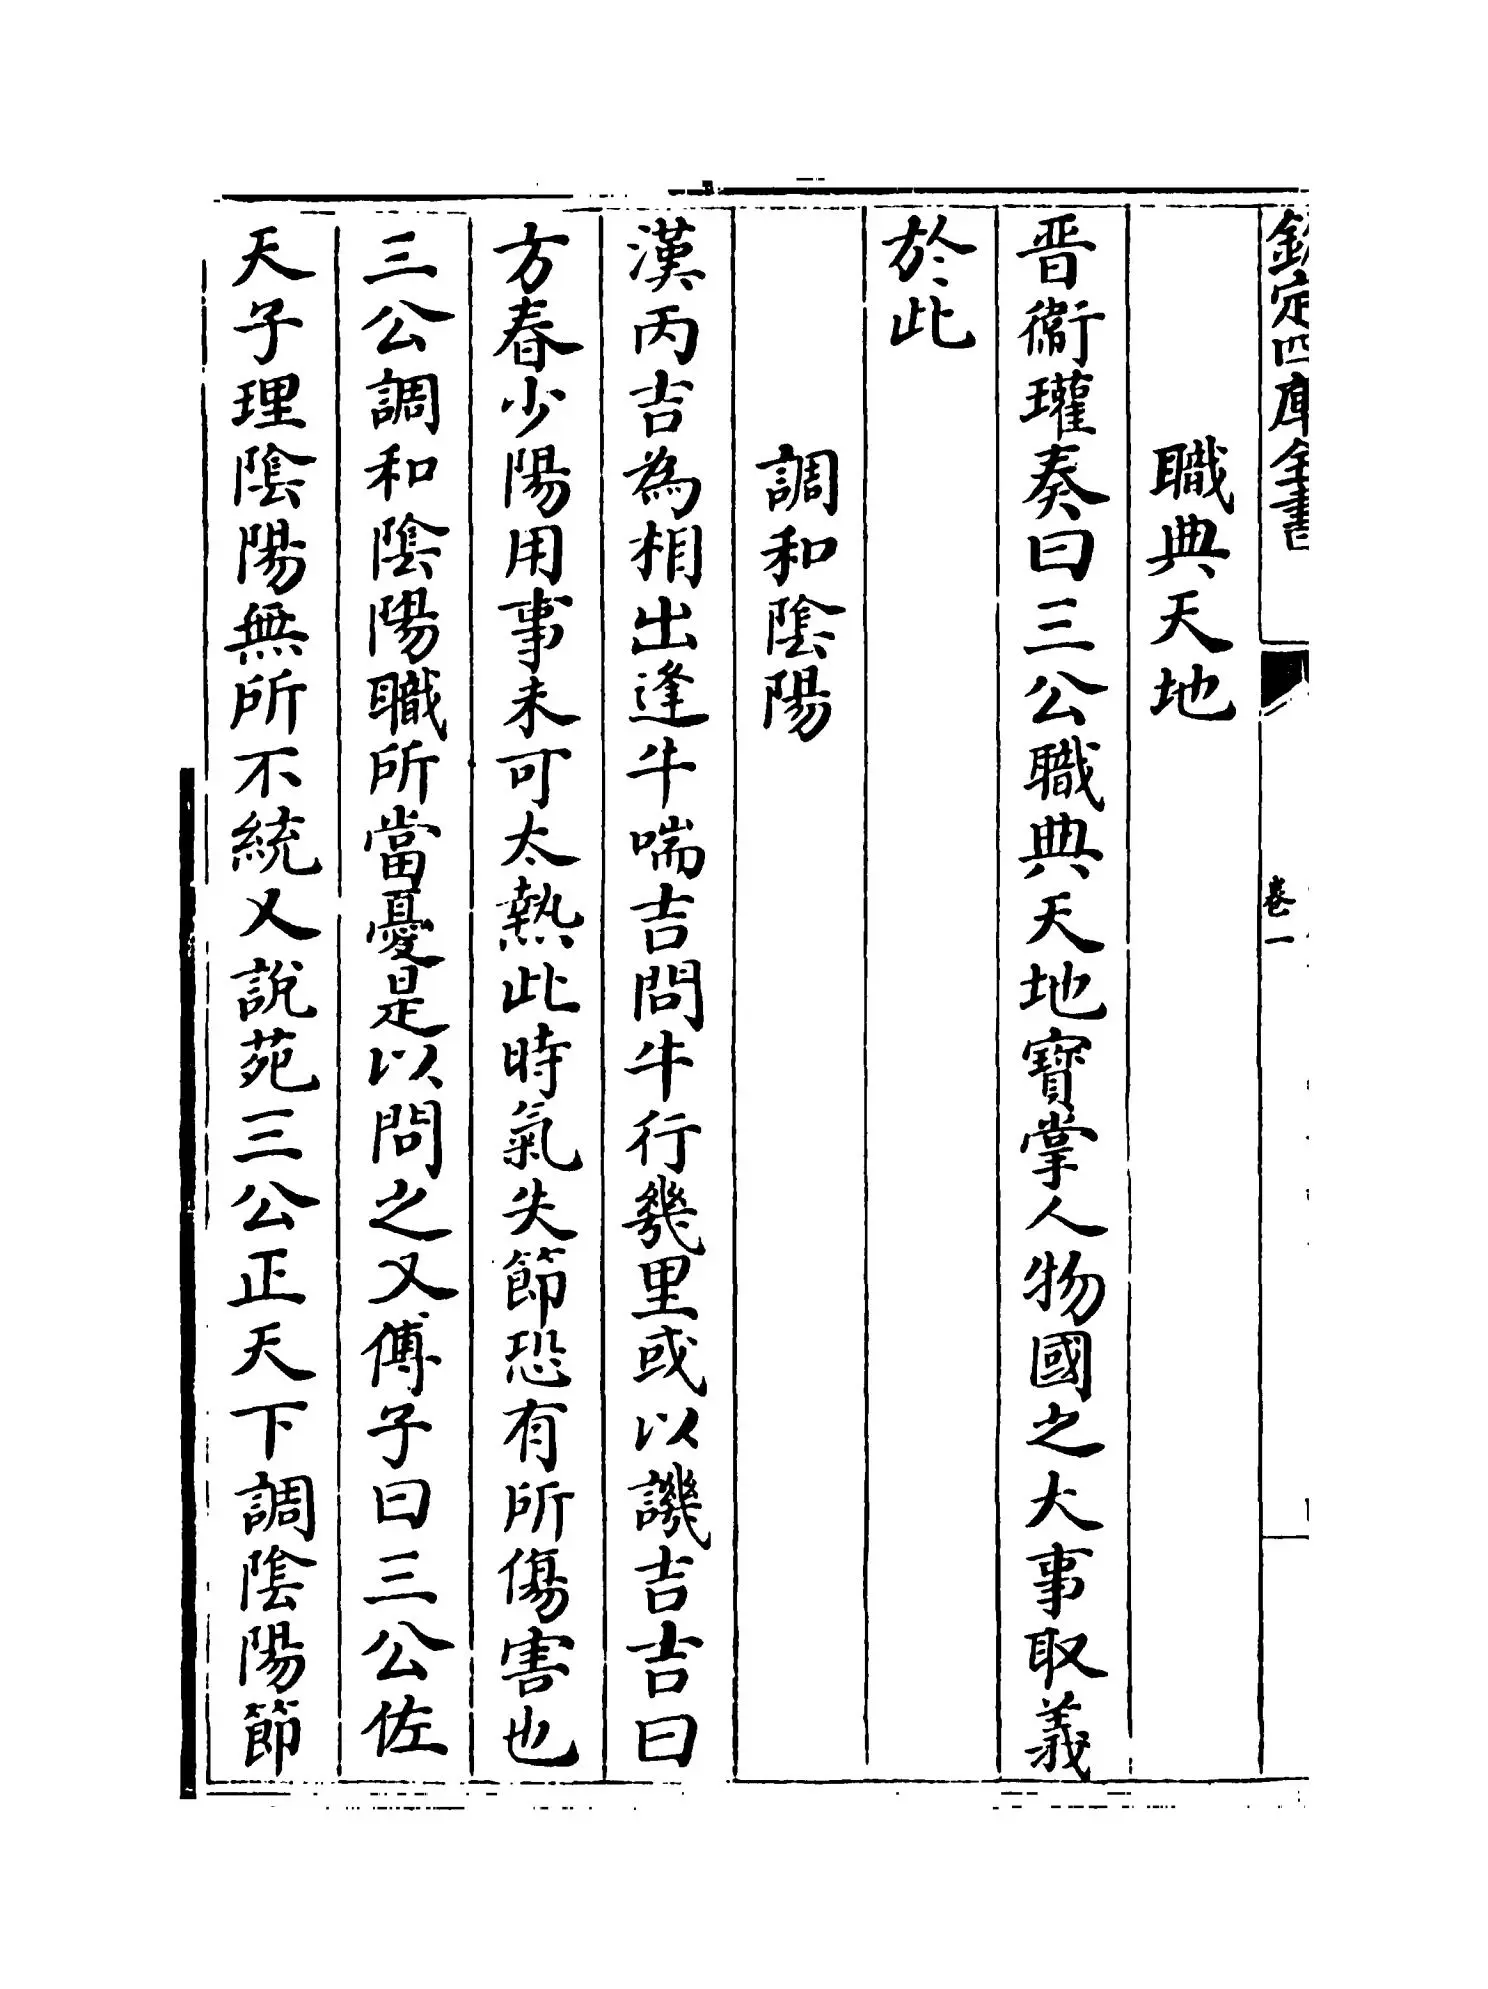 欽定四庫全書
卷一
職典天地
晋衛瓘奏曰三公職典天地寳掌人物國之大事取義
於此
調和隂陽
漢丙吉為相出逢牛喘吉問牛行幾里或以譏吉吉曰
方春少陽用事未可太熱此時氣失節恐有所傷害也
三公調和隂陽職所當憂是以問之又傅子曰三公佐
天子理隂陽無所不統又說苑三公正天下調隂陽節